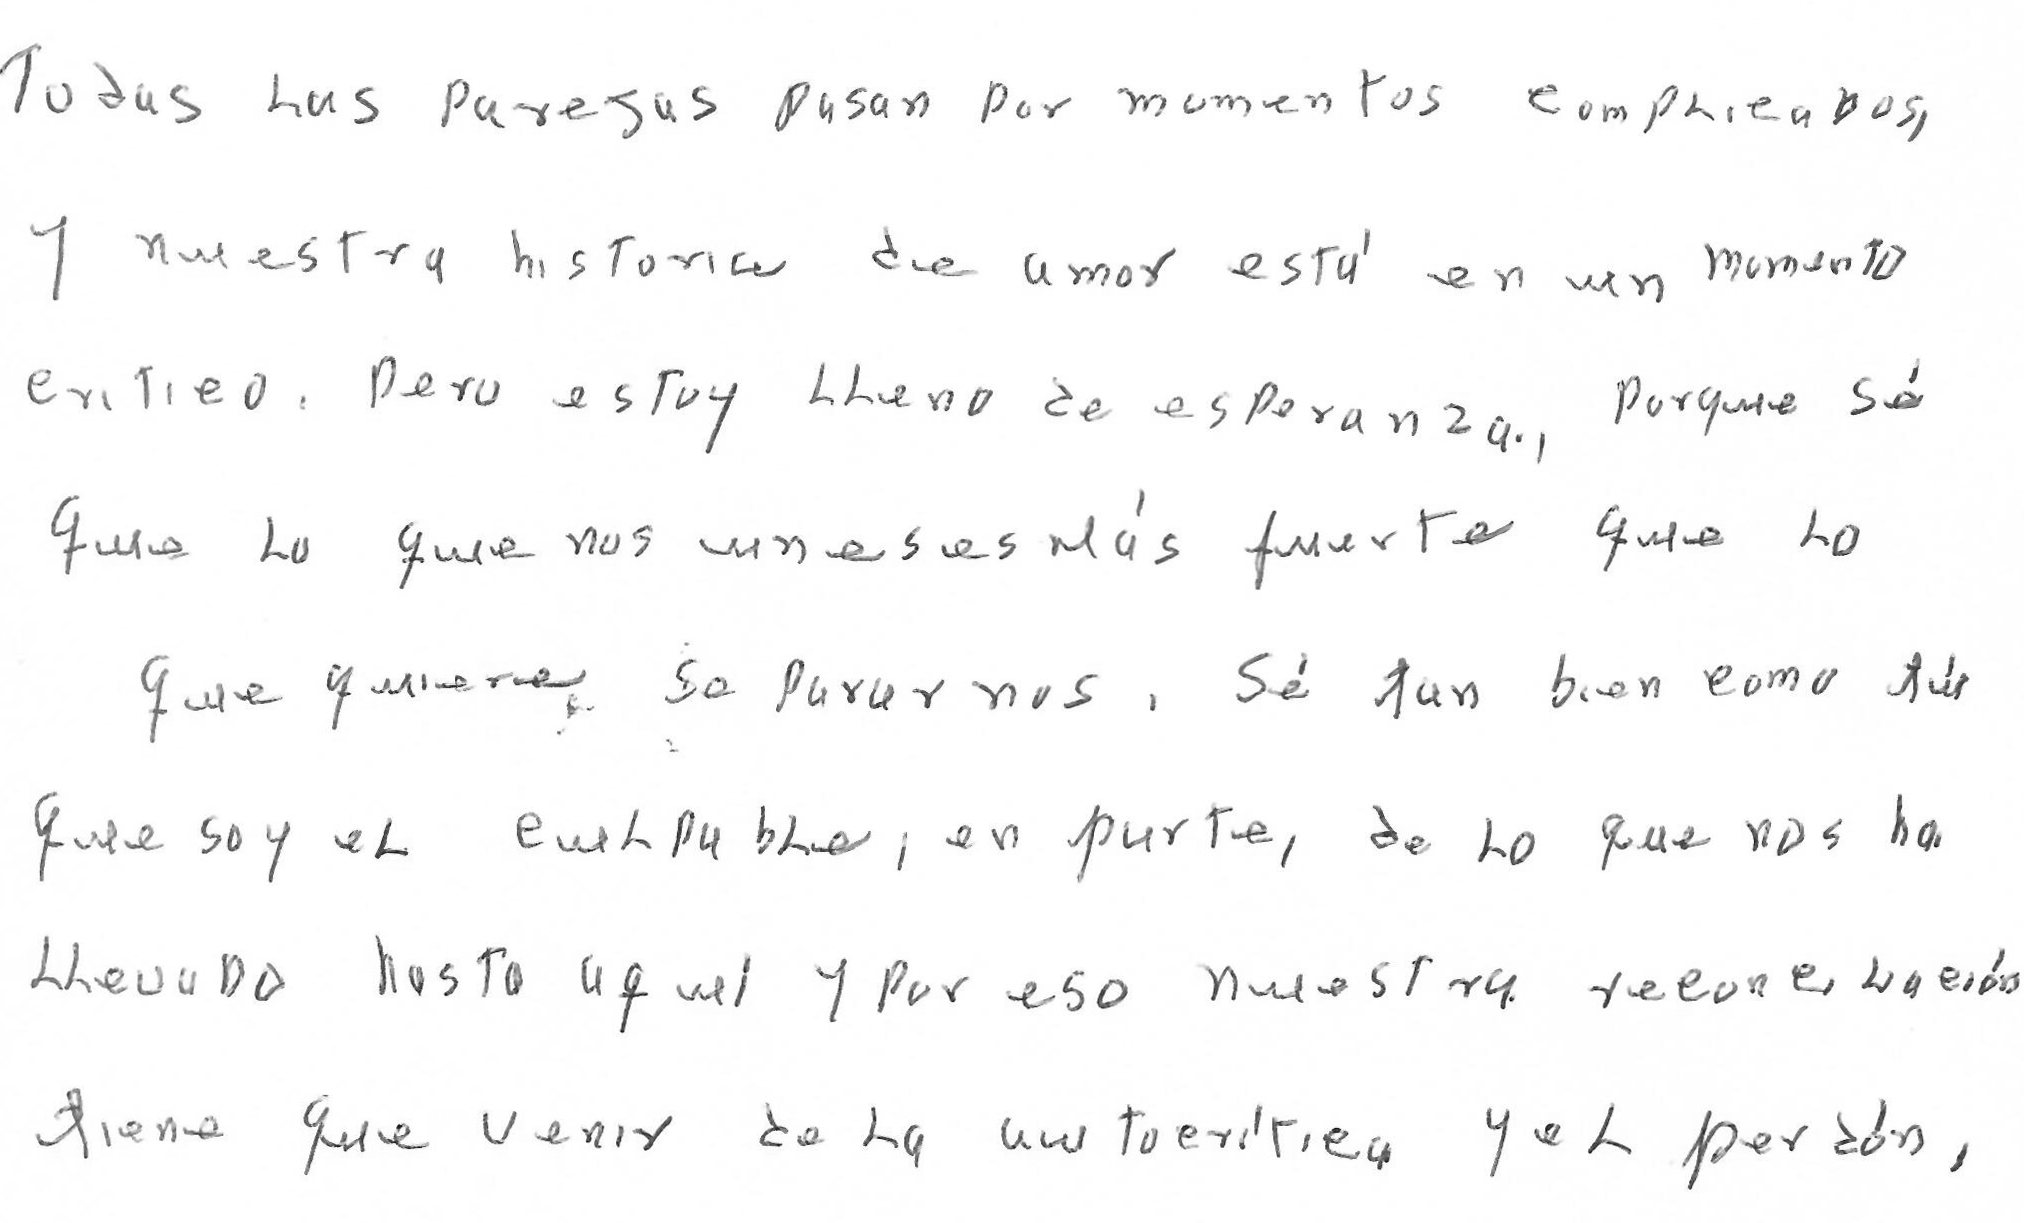 Todas las parejas pasan por momentos complicados,
y nuestra historia de amor está en un momento
critico. Pero estoy lleno de esperanza., porque sé
que lo que nos unes es más fuerte que lo
que quiere separarnos. Sé tan bien como tú
que soy el culpable, en parte, de lo que nos ha
llevado hasta aquí y por eso nuestra reconciliación
tiene que venir de la autocrítica y el perdón,